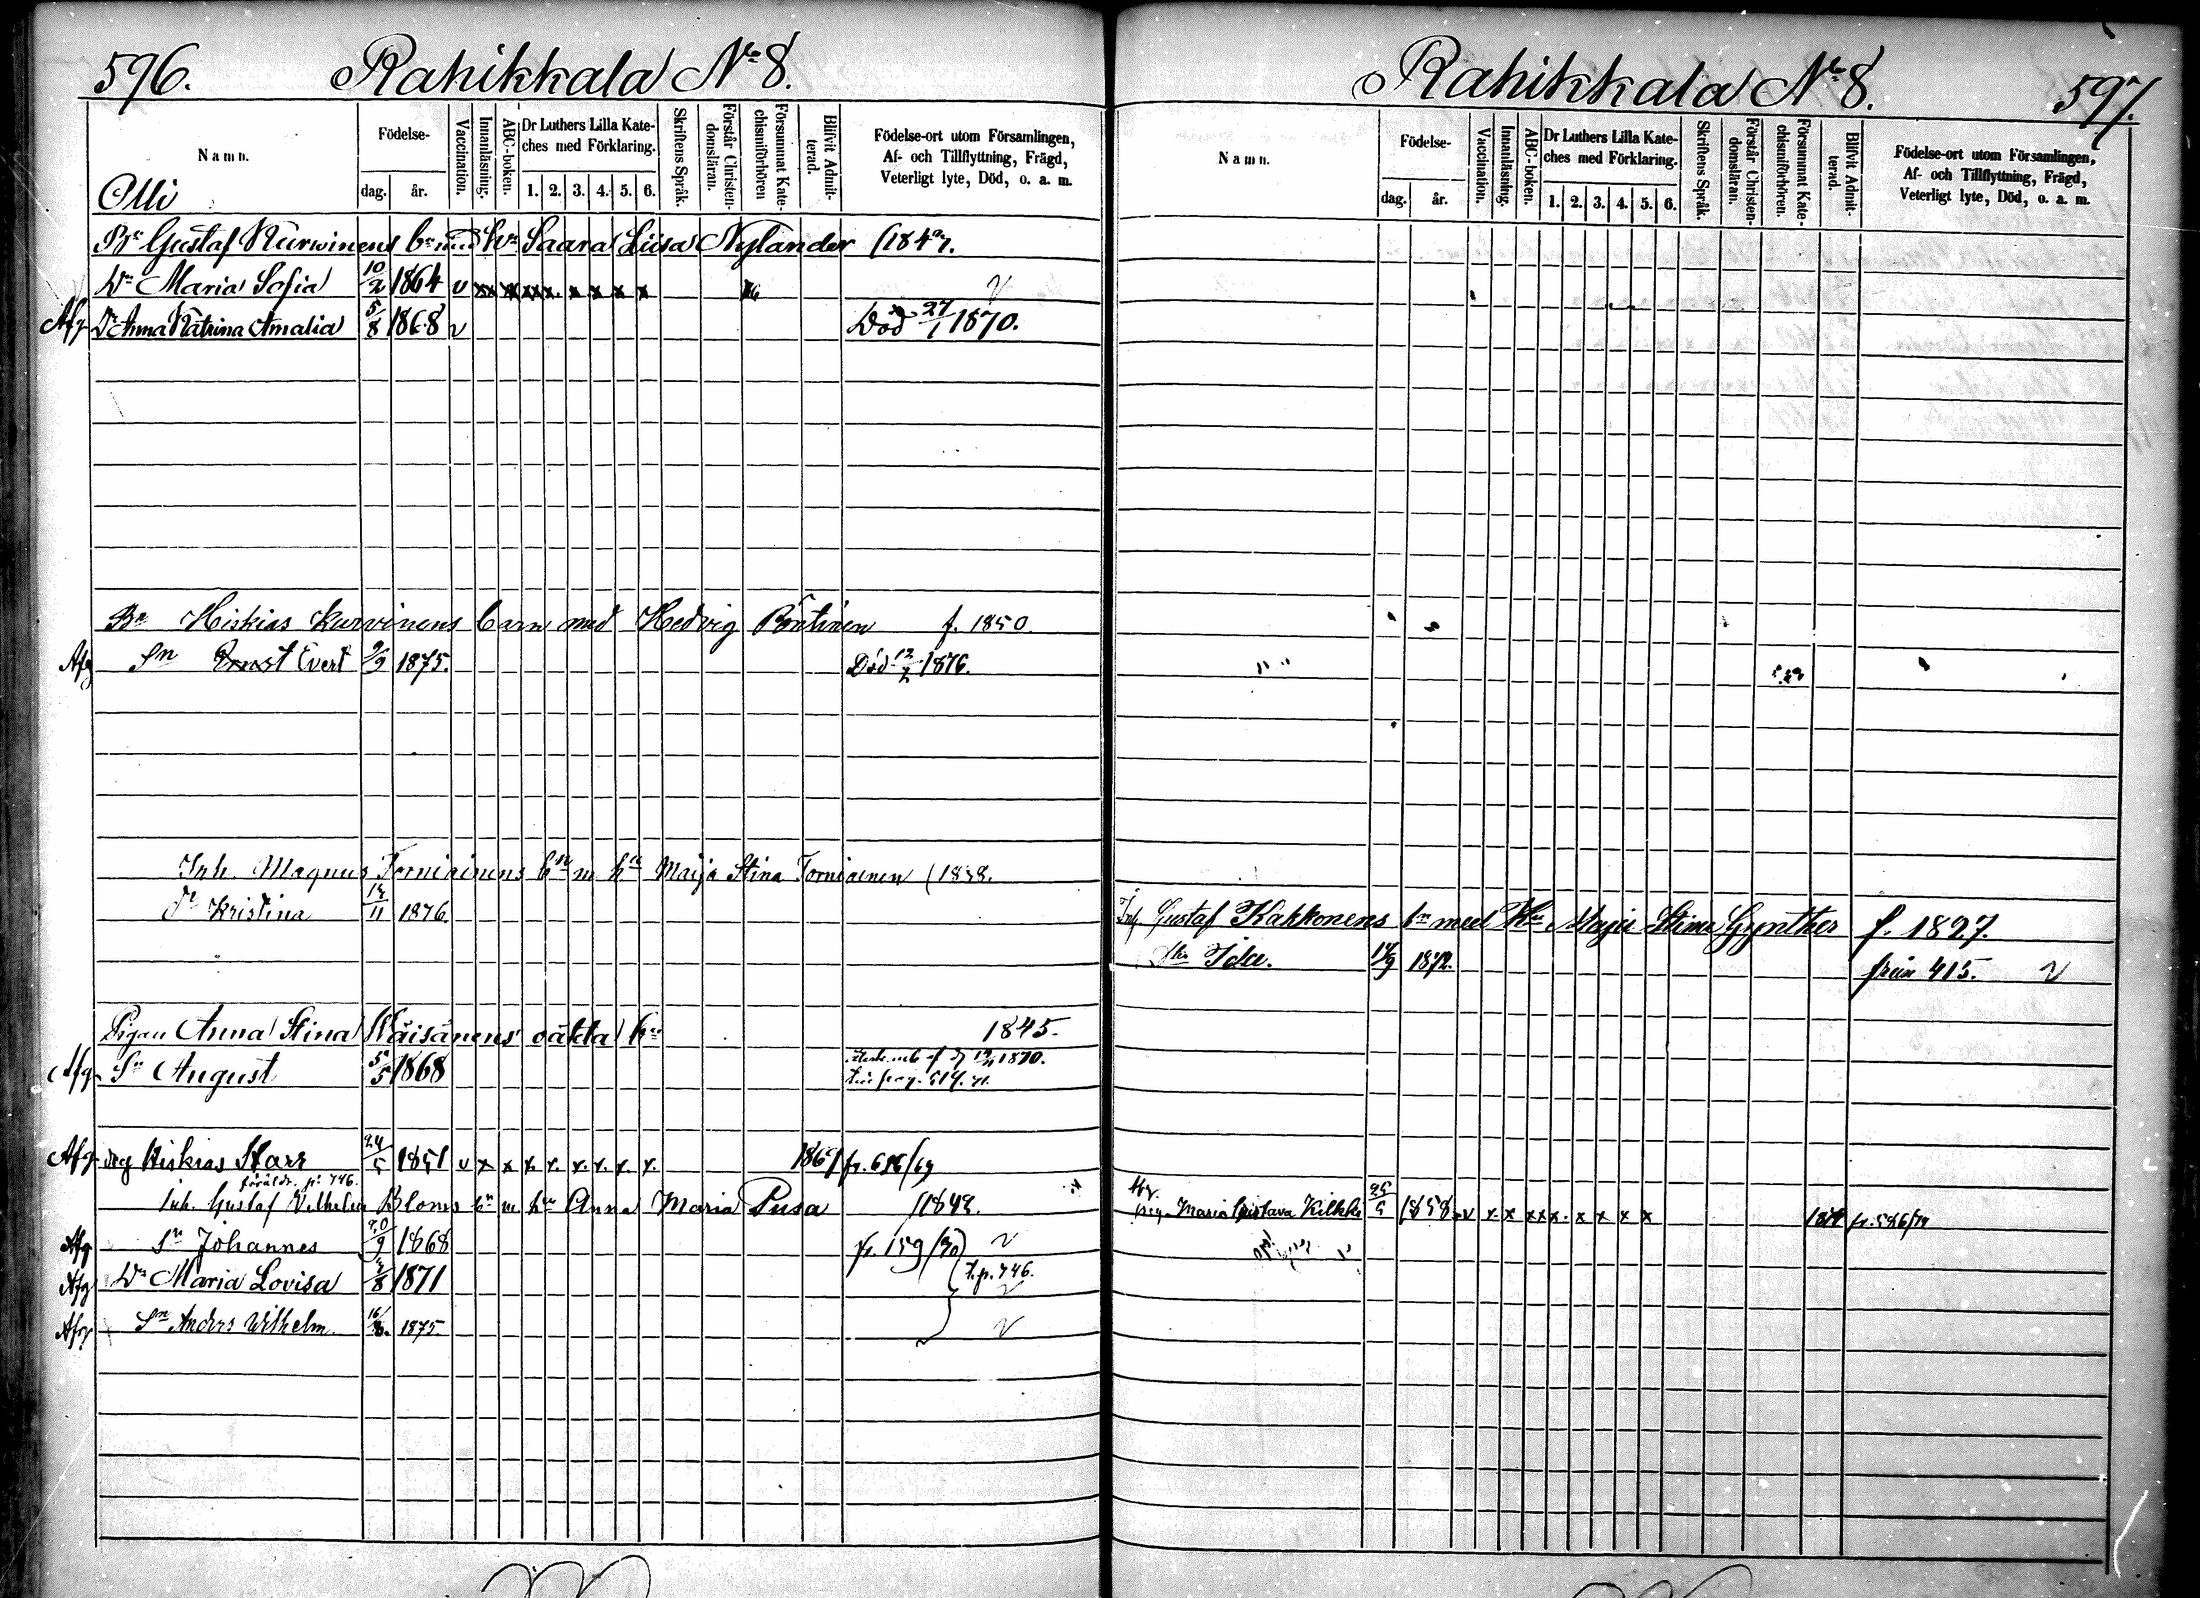 596. Rahikkala No 8.
Namn.
Födelse-
dag. år.
Vaccination.
Innanläsning.
ABC-boken.
Dr Luthers Lilla Kate-
ches med Förklaring.
1. 2. 3. 4. 5. 6.
Skriftens Språk.
Förstår Christen-
domsläran.
Försummat Kate-
chismiförhören
Blifvit Admit-
terad.
Födelse-ort utom Församlingen,
Af- och Tillflyttning, Frägd,
Veterligt lyte, Död, o. a. m.
Olli
Bn Gustaf Kurwinens bn med hu Saara Liisa Nylander (1847.
Dr Maria Sofia 10/2 1864 v xx xx xxx. x x x x v
Afg Dr Anna Katrina Amalia 5/8 1868 v Död 27/1 1870.
Bn Hiskias Kurvinens barn med Hedvig Pöntinen f. 1850.
Afg Sn Ernst Evert 9/9 1875. Död 12/2 1876.
Inh. Magnus Torniainens bn m hu Maija Stina Torniainen (1838.
Dr Kristina 14/11 1876.
Pigan Anna Stina Wäisänens oäkta bn 1845.
Afg Sn August 5/5 1868
Afg drg Hiskias Starr 24/5 1851 v x x x. x. x. x. x. x. 1867 fr. 686/69
föräldr. p. 746.
Inh. Gustaf Vilhelm Bloms bn m hu Anna Maria Pusa (1842.
Afg Sn Johannes 20/9 1868 fr. 159/70 v
Afg Dr Maria Lovisa 4/8 1871 t. p. 746. v
Afg Sn Anders Wilhelm 16/8. 1875. v
Rahikkala No 8. 597.
Namn.
Födelse-
dag. år.
Vaccination.
Innanläsning.
ABC-boken.
Dr Luthers Lilla Kate-
ches med Förklaring.
1. 2. 3. 4. 5. 6.
Skriftens Språk.
Förstår Christen-
domsläran.
Försummat Kate-
chismiförhören.
Blifvit Admit-
terad.
Födelse-ort utom Församlingen,
Af- och Tillflyttning, Frägd,
Veterligt lyte, Död, o. a. m.
Inh. Gustaf Kakkonens bn med hu Maija Stina Gynther f. 1827.
Dr Ida. 14/9 1872. från 415. v
pig. Maria Gustava Kilkki 25/5 1858. v x x xxx. x x x x fr. 586/79